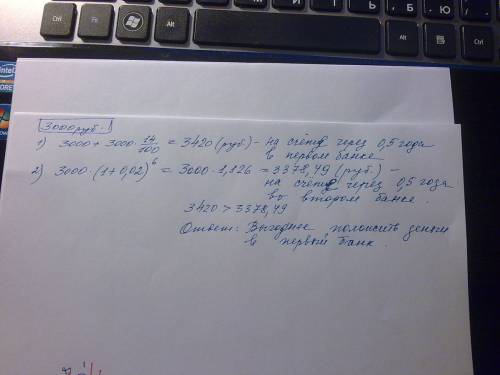 Ctrl
Fn
Alt
Alt
Ctrl
Б
Ю
intel
3000 руб.
1) 3000 + 3000 · 14/100 = 3420 (руб) – на счету через 0,5 года
в первом банке
2) 3000 · (1 + 0,02)⁶ = 3000 · 1,126 = 3378,49 (руб.) –
на счету через 0,5 года
во втором банке.
3420 > 3378,49
Ответ: Выгоднее положить деньги
в первый банк.